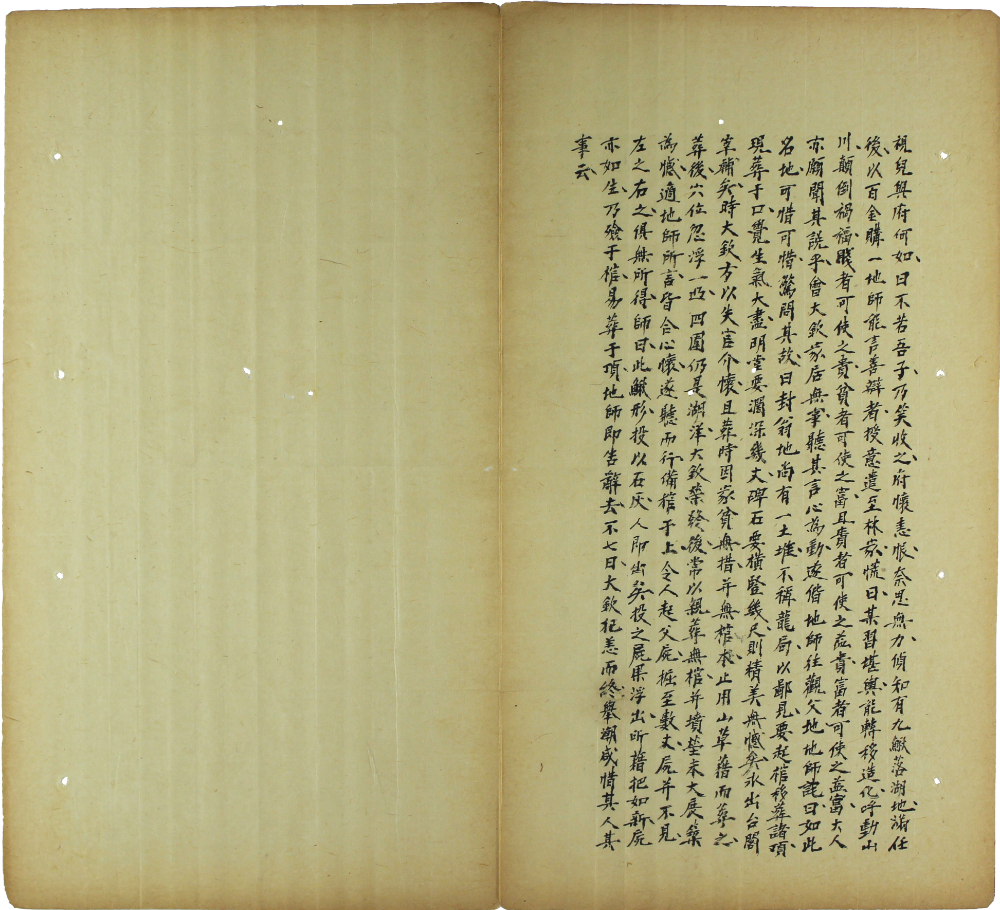 視兒與府何如曰不若吾子乃笑收之府懷恚恨奈思無力偵知有九鰍落湖地滿任
後以百金購一地師能言善辯者授意遣至林家慌曰某習堪輿能轉移造化呼動山
川顛倒禍福賤者可使之貴貧者可使之富且貴者可使之益貴富者可使之益富大人
亦願聞其說乎會大欽家居無寧聽其言心為動遂偕地師往觀父地地師詫曰如此
名地可惜可惜驚問其故曰封翁地尚有一土堆不稱龍局以鄙見要起棺移葬諸頂
現葬于口覺生氣大盡明堂要濶深幾丈碑石要橫豎幾尺則精美無憾矣永出台閣
宰輔矣時大欽方以失官介懷且葬時因家貧無措并無棺木止用山草藉而葬之
葬後穴位忽浮一坵四圍仍是湖洋大欽榮發後常以親葬無棺并墳塋未大展築
為憾適地師所言皆合心懷遂聽而行備棺于上令人起父屍掘至數丈屍并不見
左之右之俱無所得師曰此鰍形投以石灰人即出矣投之屍果浮出所藉把如新屍
亦如生乃殮于棺易葬于頂地師即告辭去不七日大欽犯恙而終舉潮咸惜其人其
事云